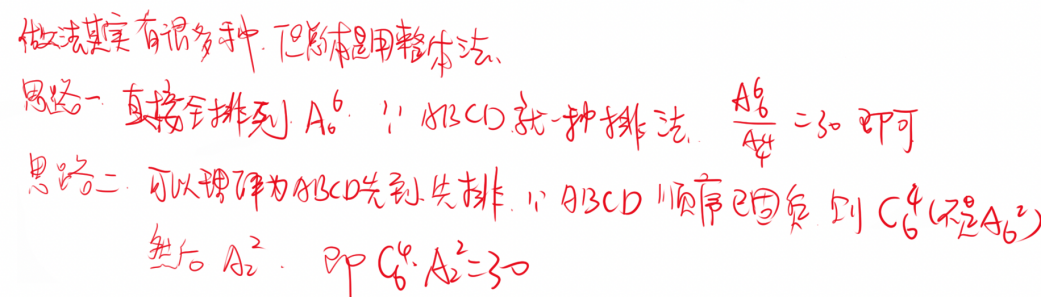 做法其实有很多种.但总体是用整体法、
思路一 直接全排列. A₆⁶ ∵ ABCD就一种排法. A₆⁶/A₄⁴ =30 即可
思路二. 可以理解为ABCD先到先排. ∵ ABCD 顺序已固定. 则 C₆⁴(不是A₆²)
然后 A₂². 即 C₆⁴·A₂²=30